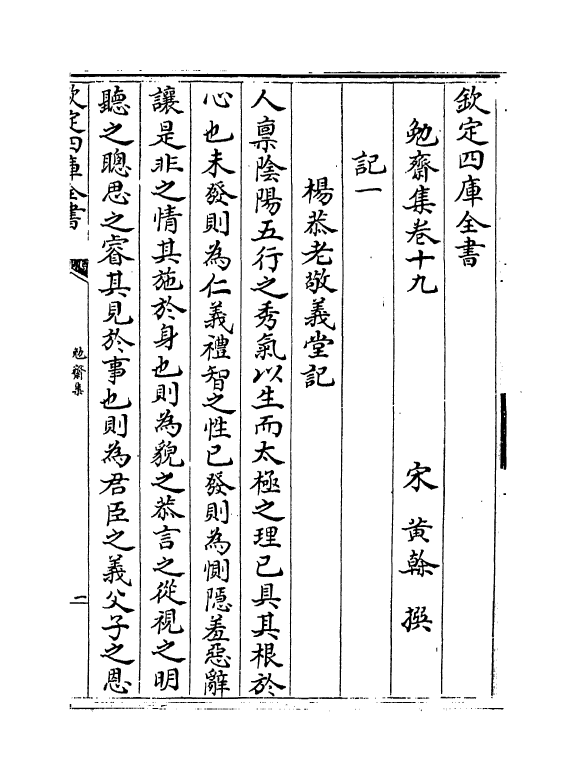 欽定四庫全書
勉齋集卷十九
宋 黄榦 撰
記一
楊恭老敬義堂記
人禀陰陽五行之秀氣以生而太極之理已具其根於
心也未發則為仁義禮智之性已發則為惻隠羞惡辭
讓是非之情其施於身也則為貌之恭言之從視之明
聽之聰思之睿其見於事也則為君臣之義父子之恩
欽定四庫全書
勉齋集
二